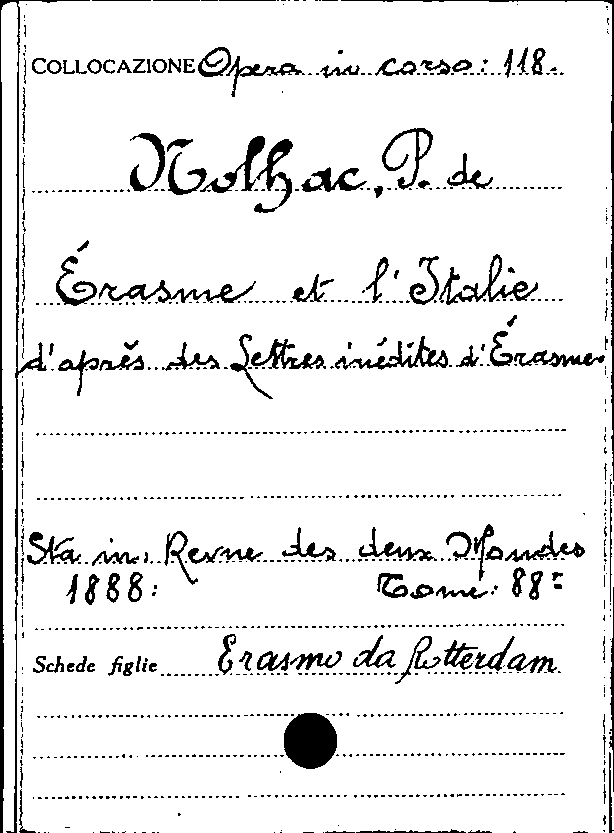 COLLOCAZIONE Opera in corso: 118.
Nolhac, P. de
Érasme et l'Italie
d'après des Lettres inédites d'Érasme.
Sta in: Revue des deux Mondes
1888: Tome: 88º
Schede figlie Erasmo da Rotterdam